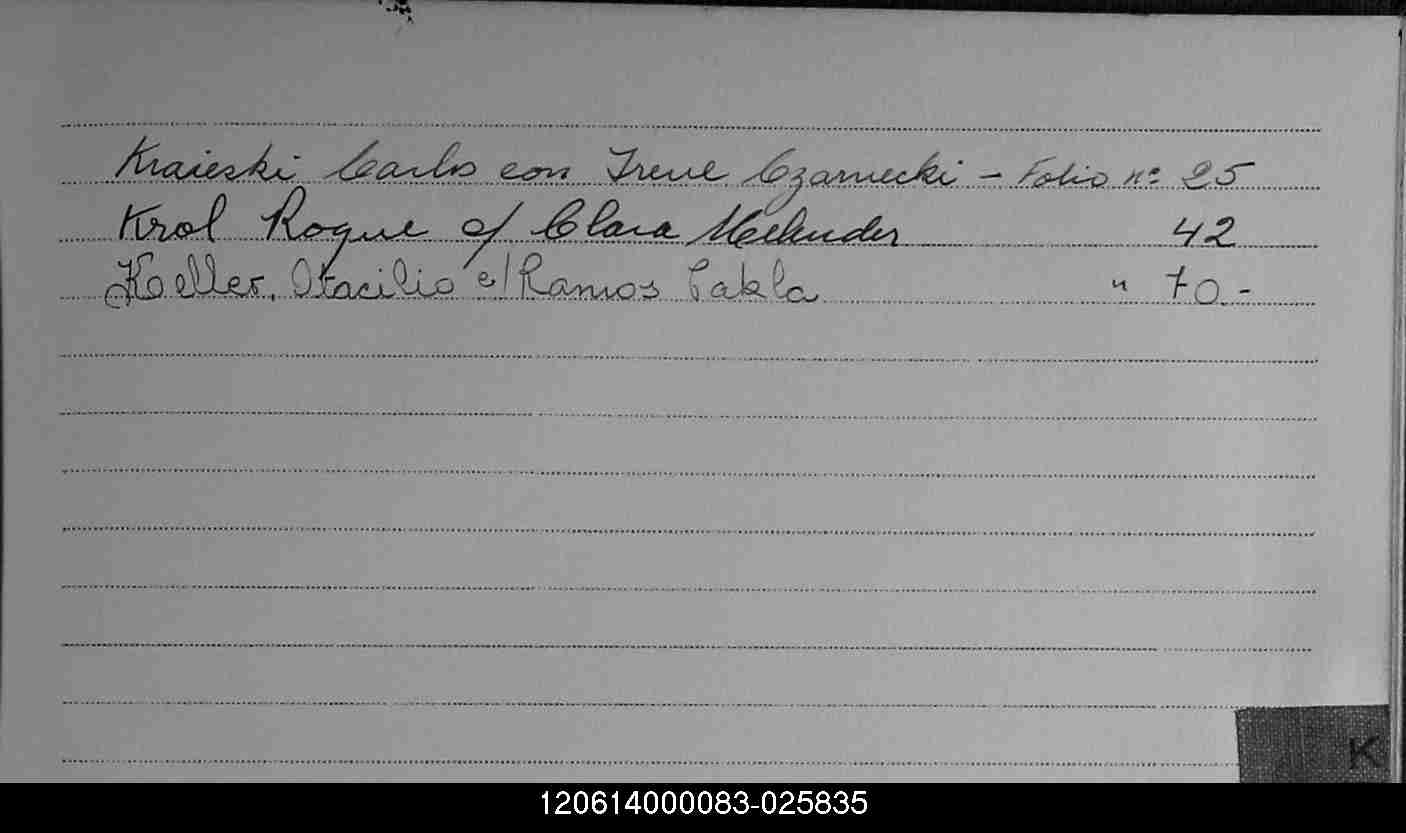 Kraieski Carlos con Irene Czarnecki - Folio nº 25
Krol Roque c/ Clara 42
Keller, Otacilio c/ Ramos Pabla " 70.-
K
120614000083-025835